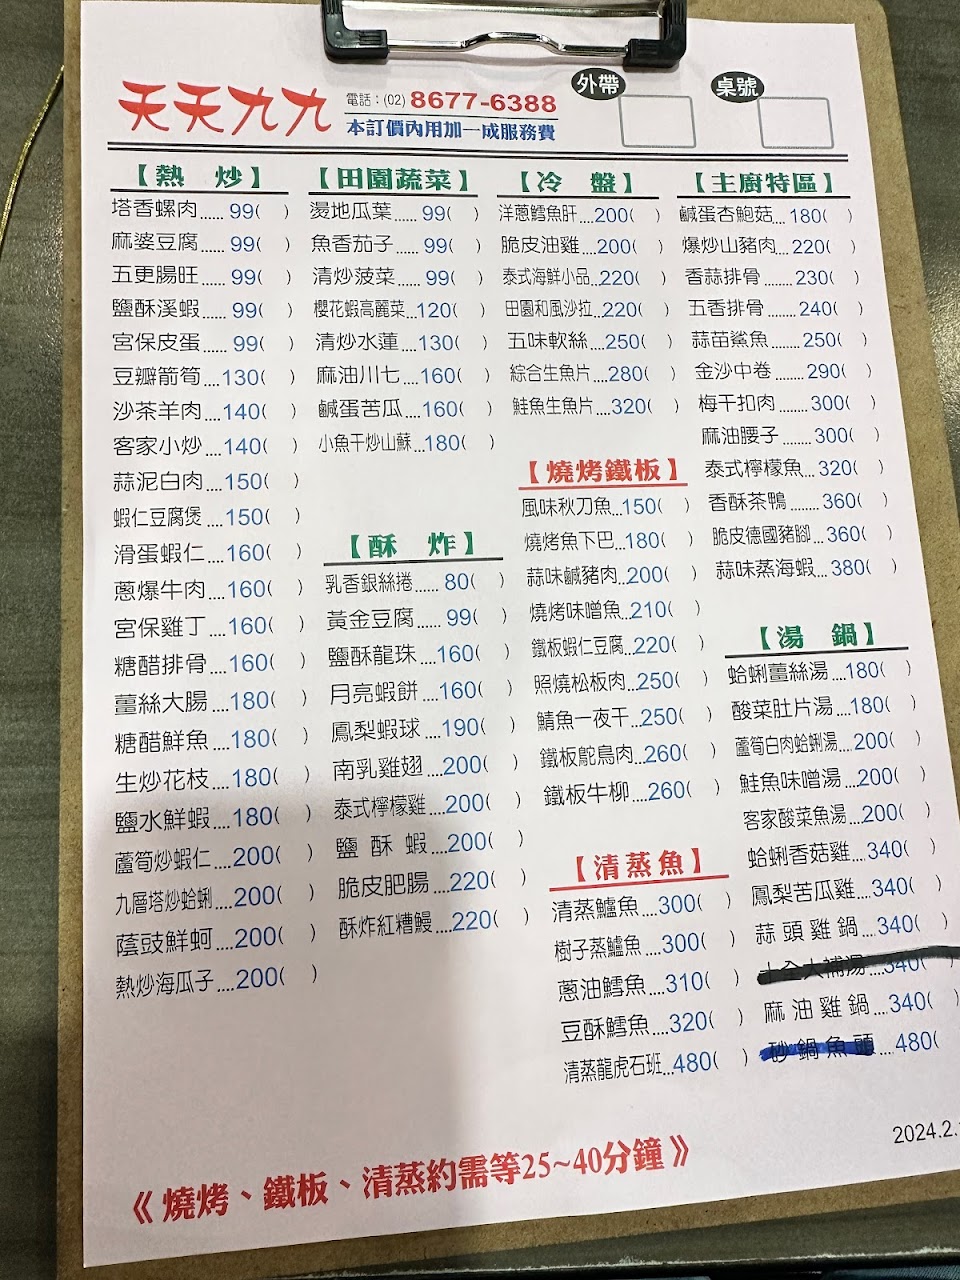 天天九九
電話：(02) 8677-6388
本訂價內用加一成服務費
外帶
桌號
【熱 炒】
塔香螺肉......99( )
麻婆豆腐......99( )
五更腸旺......99( )
鹽酥溪蝦......99( )
宮保皮蛋......99( )
豆瓣箭筍....130( )
沙茶羊肉....140( )
客家小炒....140( )
蒜泥白肉....150( )
蝦仁豆腐煲....150( )
滑蛋蝦仁....160( )
蔥爆牛肉....160( )
宮保雞丁....160( )
糖醋排骨....160( )
薑絲大腸....180( )
糖醋鮮魚....180( )
生炒花枝....180( )
鹽水鮮蝦....180( )
蘆筍炒蝦仁....200( )
九層塔炒蛤蜊....200( )
蔭豉鮮蚵....200( )
熱炒海瓜子....200( )
【田園蔬菜】
燙地瓜葉......99( )
魚香茄子......99( )
清炒菠菜......99( )
櫻花蝦高麗菜...120( )
清炒水蓮....130( )
麻油川七....160( )
鹹蛋苦瓜....160( )
小魚干炒山蘇...180( )
【酥 炸】
乳香銀絲捲......80( )
黃金豆腐......99( )
鹽酥龍珠....160( )
月亮蝦餅....160( )
鳳梨蝦球....190( )
南乳雞翅....200( )
泰式檸檬雞....200( )
鹽 酥 蝦....200( )
脆皮肥腸....220( )
酥炸紅糟鰻....220( )
【冷 盤】
洋蔥鱈魚肝...200( )
脆皮油雞....200( )
泰式海鮮小品...220( )
田園和風沙拉...220( )
五味軟絲....250( )
綜合生魚片....280( )
鮭魚生魚片....320( )
【燒烤鐵板】
風味秋刀魚...150( )
燒烤魚下巴...180( )
蒜味鹹豬肉...200( )
燒烤味噌魚....210( )
鐵板蝦仁豆腐...220( )
照燒松板肉....250( )
鯖魚一夜干....250( )
鐵板鴕鳥肉....260( )
鐵板牛柳....260( )
【清蒸魚】
清蒸鱸魚....300( )
樹子蒸鱸魚....300( )
蔥油鱈魚....310( )
豆酥鱈魚....320( )
清蒸龍虎石班...480( )
【主廚特區】
鹹蛋杏鮑菇....180( )
爆炒山豬肉....220( )
香蒜排骨.......230( )
五香排骨.......240( )
蒜苗鯊魚.......250( )
金沙中卷.......290( )
梅干扣肉.......300( )
麻油腰子.......300( )
泰式檸檬魚...320( )
香酥茶鴨.......360( )
脆皮德國豬腳...360( )
蒜味蒸海蝦....380( )
【湯 鍋】
蛤蜊薑絲湯....180( )
酸菜肚片湯....180( )
蘆筍白肉蛤蜊湯....200( )
鮭魚味噌湯....200( )
客家酸菜魚湯....200( )
蛤蜊香菇雞....340( )
鳳梨苦瓜雞....340( )
蒜 頭 雞 鍋....340( )
十全大補湯....340( )
麻 油 雞 鍋....340( )
砂 鍋 魚 頭....480(
2024.2.
《 燒烤、鐵板、清蒸約需等25~40分鐘 》